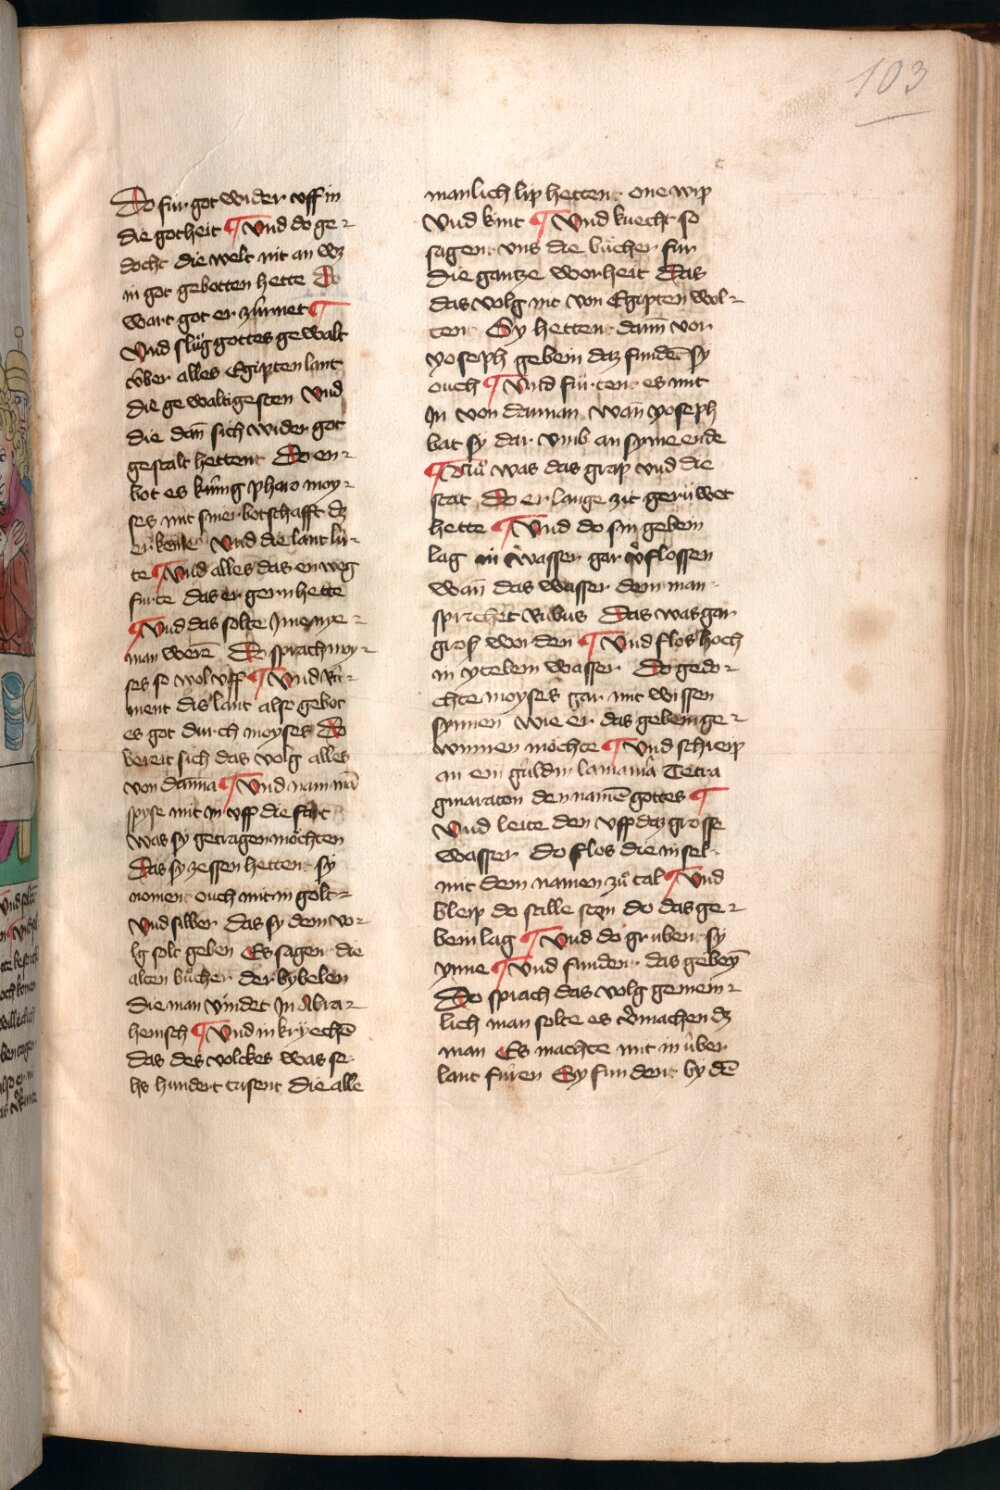 103
Do fůr got wider vff in
die gotheit ¶ Vnd do ge-
docht die welt nit an dz
in got gebotten hette Do
wart got er zúrnet ¶
Vnd slůg gottes gewalt
über alles Egipten lant
die gewaltigesten Vnd
die dan̄ sich wider got
gestalt hettent Do en-
bot es kúnig pharo moy-
ses mit siner botschafft dz
er keme Vnd die lant lú-
te ¶ Vnd alles das enweg
fůrte das er gern hette
¶ Vnd das solte Jme nye-
man werē Do sprach moy-
ses so wol vff ¶ Vnd rú-
ment dis lant also gebot
es got durch moyses Do
bereit sich das volg alles
von danna ¶ Vnd nam mā
spyse mit in vff die fart
was sy getragen möchten
Das sy zessen hettent sy
noment ouch mit in golt
Vnd silber das sy dem vo-
lg solt geben Es sagent die
alten bůcher der bybelen
die man vindet Jn Abra-
hemsch ¶ Vnd in kryechē
das des volckes was se-
hs hundert tusent die alle
manlich lip hettent one wip
Vnd kint ¶ Vnd knecht so
sagent vns die bůcher fúr
die gantze worheit Das
das volg nit von Egipten wol-
tent Sy hetten dann vor
yoseph gebein daz fundēt sy
ouch ¶ Vnd fůrtent es mit
Jn von dannan wan̄ yoseph
bat sy dar vmb an syme ende
¶ Nů was das grap vnd die
stat Do er lange zit gerůwet
hette ¶ Vnd do sin gebein
lag in wasser gar v̾flossen
wan̄ das wasser dem man
sprichet Nubus Das was gar
groß worden ¶ Vnd flos hoch
in ytelem wasser Do gedo-
chte moyses gar mit wissen
synnen wie er das gebein ge-
winnen möchte ¶ Vnd schreip
an ein guldin Tetra
gmaraton den namē gottes ¶
Vnd leite den vff daz grosse
wasser do flos die insel
mit dem namen zů tal ¶ Vnd
bleip do stille sten do das ge-
bein lag ¶ Vnd do grubent sy
ynne ¶ Vnd fundent das gebeȳ
Do sprach das volg gemein-
lich man solte es v̾machen dz
man Es machte mit in über
lant fůren Sy fundent by dē